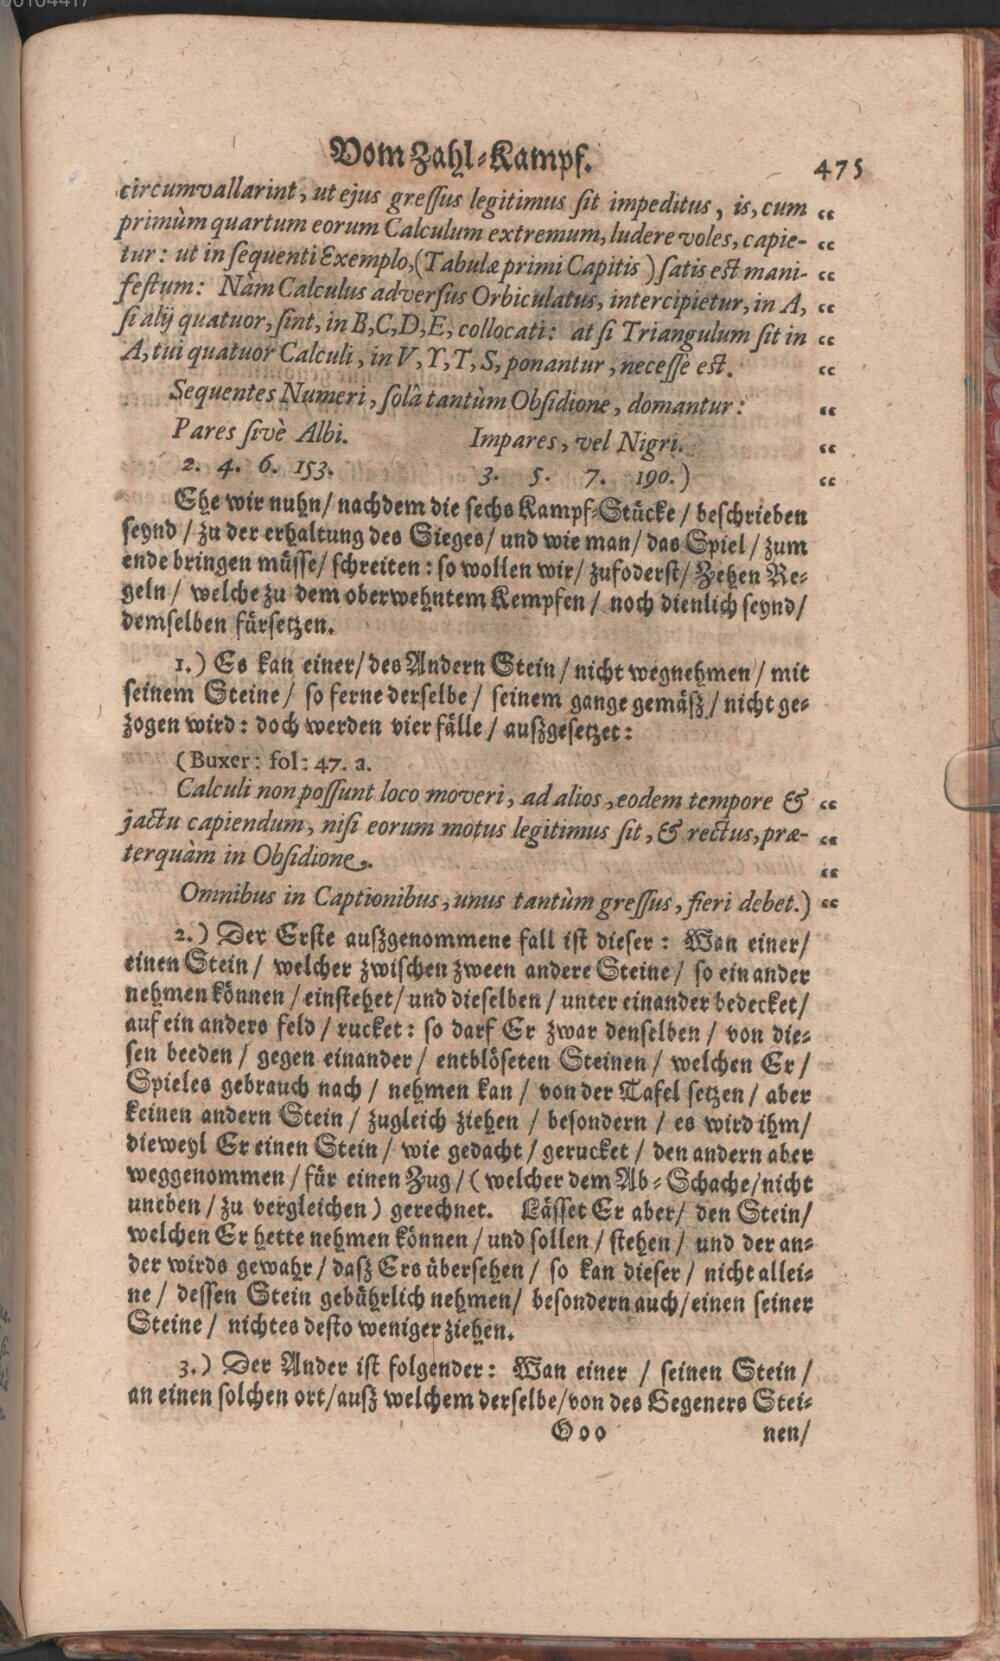 00104417
Vom Zahl-Kampf. 475
circumvallarint, ut ejus gressus legitimus sit impeditus, is, cum “
primùm quartum eorum Calculum extremum, ludere voles, capie- “
tur: ut in sequenti Exemplo, (Tabulæ primi Capitis) satis est mani- “
festum: Nàm Calculus adversus Orbiculatus, intercipietur, in A, “
si alij quatuor, sint, in B, C, D, E, collocati: at si Triangulum sit in “
A, tui quatuor Calculi, in V, Y, T, S, ponantur, necesse est. “
Sequentes Numeri, solâ tantùm Obsidione, domantur: “
Pares sivè Albi. Impares, vel Nigri. “
2. 4. 6. 153. 3. 5. 7. 190.) “
Ehe wir nuhn/ nachdem die sechs Kampf-Stücke/ beschrieben
seynd/ zu der erhaltung des Sieges/ und wie man/ das Spiel/ zum
ende bringen müsse/ schreiten: so wollen wir/ zufoderst/ Zehen Re-
geln/ welche zu dem oberwehntem Kempfen/ noch dienlich seynd/
demselben fürsetzen.
1.) Es kan einer/ des Andern Stein/ nicht wegnehmen/ mit
seinem Steine/ so ferne derselbe/ seinem gange gemäsz/ nicht ge-
zogen wird: doch werden vier fälle/ auszgesetzet:
(Buxer: fol: 47. a.
Calculi non possunt loco moveri, ad alios, eodem tempore & “
jactu capiendum, nisi eorum motus legitimus sit, & rectus, præ- “
terquàm in Obsidione. “
Omnibus in Captionibus, unus tantùm gressus, fieri debet.) “
2.) Der Erste auszgenommene fall ist dieser: Wan einer/
einen Stein/ welcher zwischen zween andere Steine/ so einander
nehmen können/ einstehet/ und dieselben/ unter einander bedecket/
auf ein anders feld/ rucket: so darf Er zwar denselben/ von die-
sen beeden/ gegen einander/ entblöseten Steinen/ welchen Er/
Spieles gebrauch nach/ nehmen kan/ von der Tafel setzen/ aber
keinen andern Stein/ zugleich ziehen/ besondern/ es wird ihm/
dieweyl Er einen Stein/ wie gedacht/ gerucket/ den andern aber
weggenommen/ für einen Zug/ (welcher dem Ab-Schache/ nicht
uneben/ zu vergleichen) gerechnet. Lässet Er aber/ den Stein/
welchen Er hette nehmen können/ und sollen/ stehen/ und der an-
der wirds gewahr/ dasz Ers übersehen/ so kan dieser/ nicht allei-
ne/ dessen Stein gebührlich nehmen/ besondern auch/ einen seiner
Steine/ nichtes desto weniger ziehen.
3.) Der Ander ist folgender: Wan einer/ seinen Stein/
an einen solchen ort/ ausz welchem derselbe/ von des Gegeners Stei-
Ooo nen/